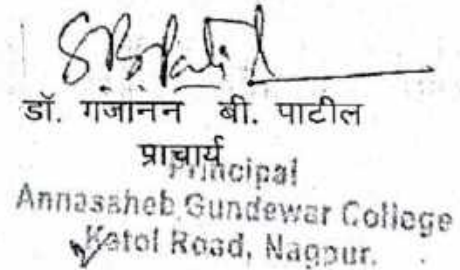 डॉ. गजानन बी. पाटील
प्राचार्य
Principal
Annasaheb Gundewar College
Katol Road, Nagpur.